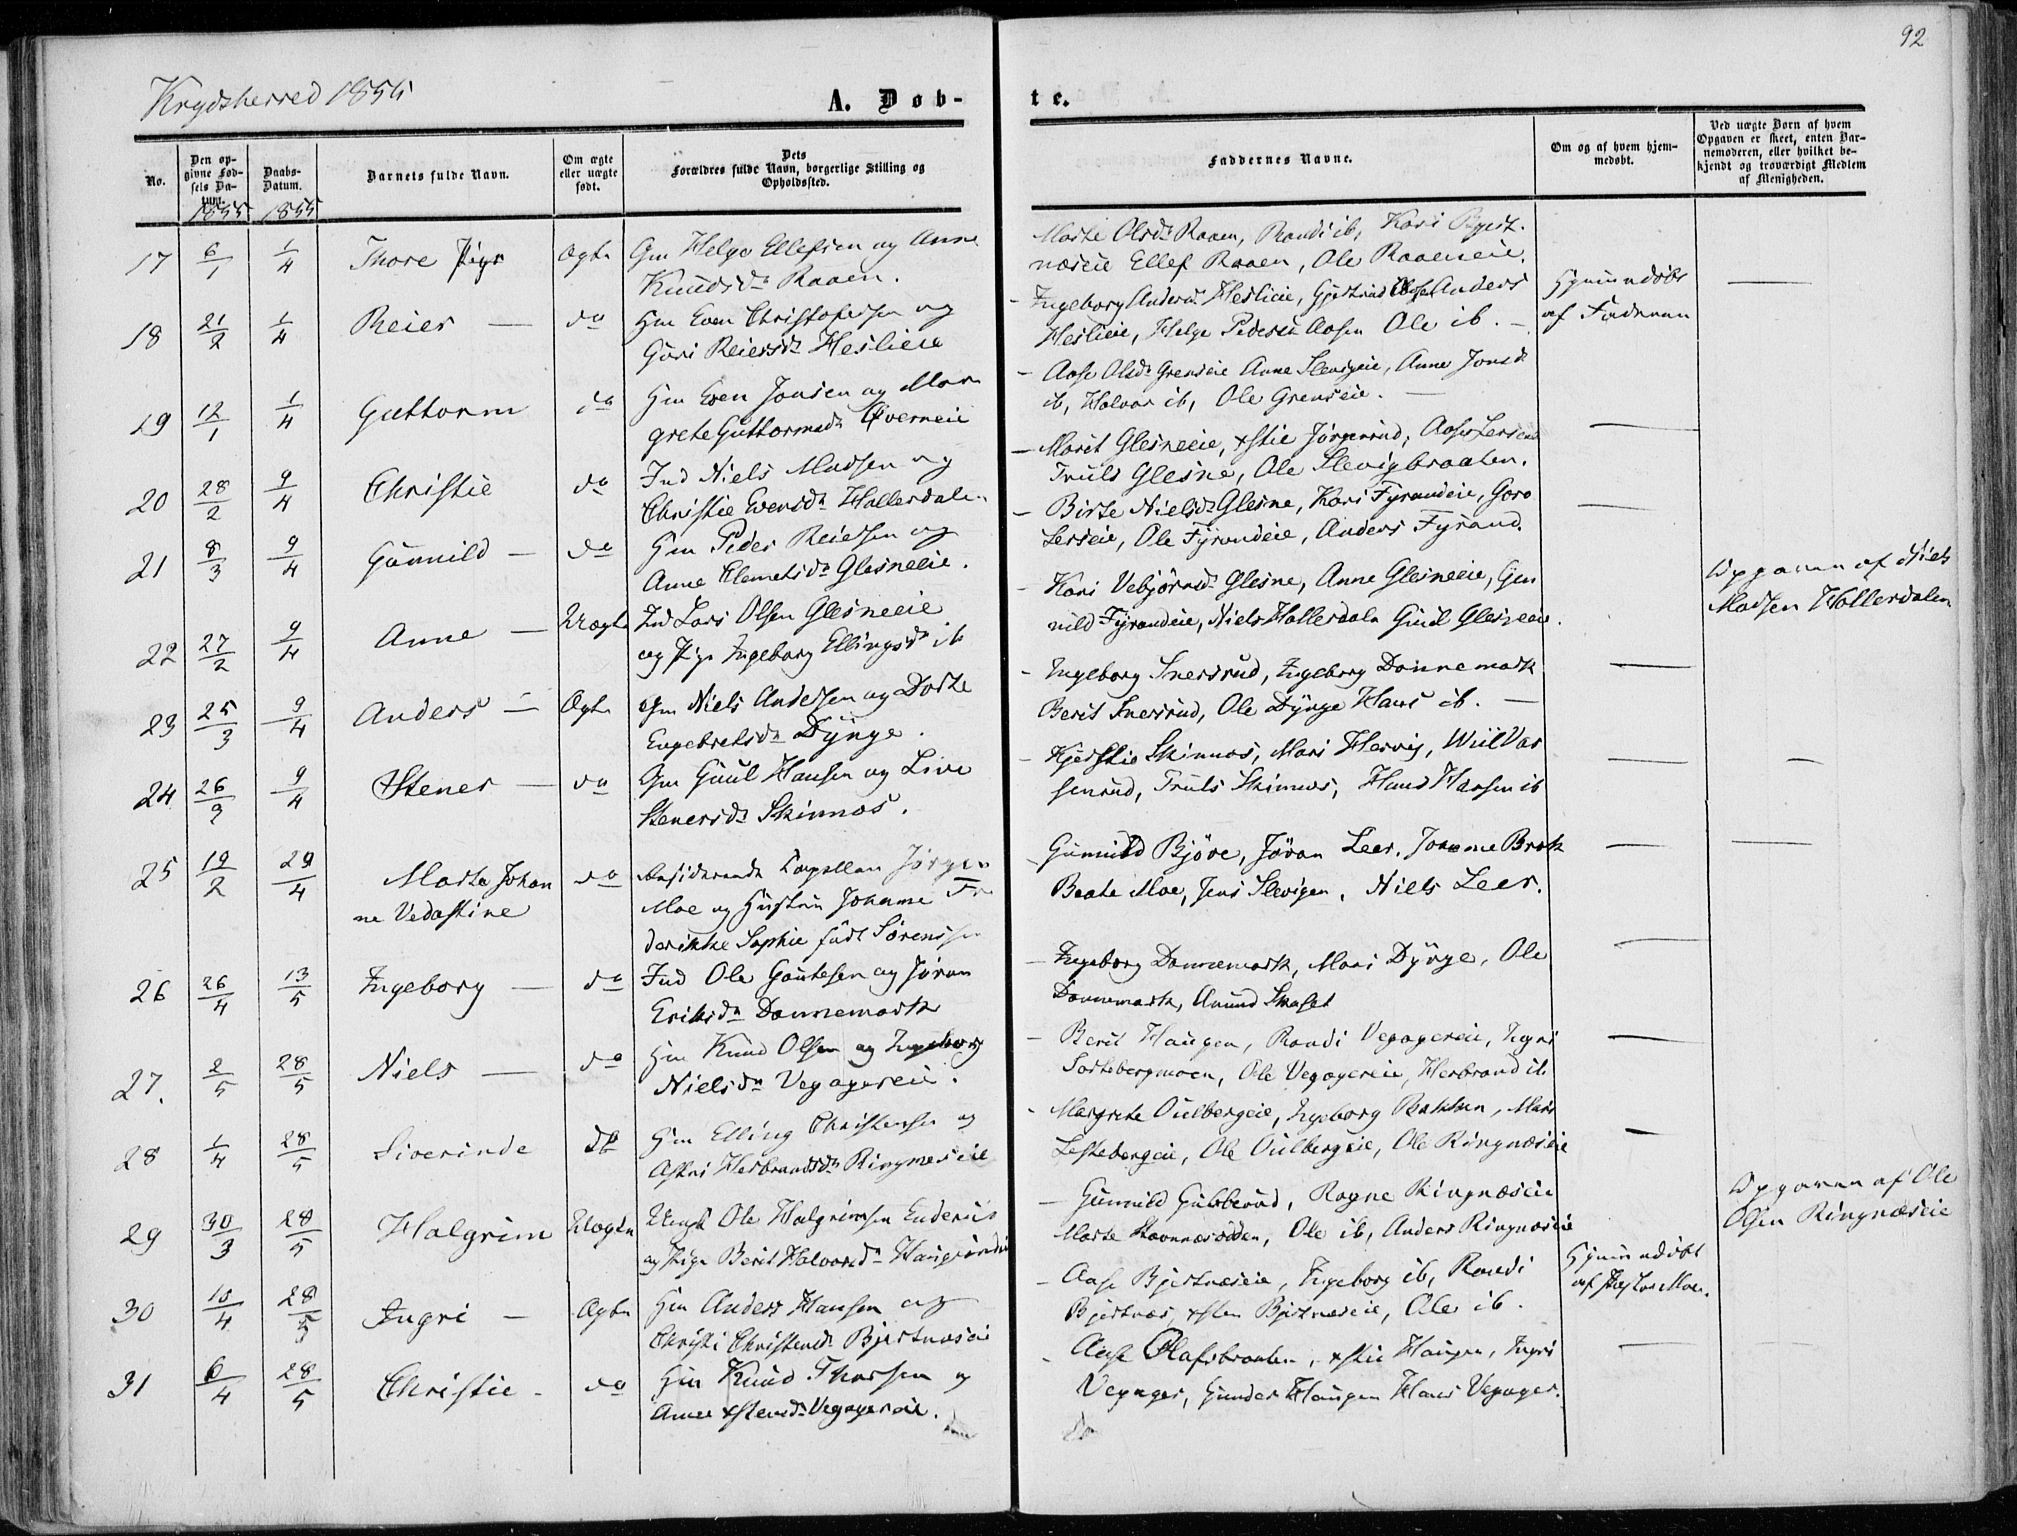 92
Krydsherred 1855
A. Døb-
te.
No.
Den op-
givne Fød-
sels Da-
tum.
Daabs-
Datum.
Barnets fulde Navn.
Om ægte
eller uægte
født.
Dets
Forældres fulde Navn, borgerlige Stilling og
Opholdssted.
Faddernes Navne.
Om og af hvem hjem-
medøbt.
Ved uægte Børn af hvem
Opgaven er skeet, enten Bar-
nemoderen, eller hvilket be-
kjendt og troværdigt Medlem
af Menigheden.
1855 1855
17 6/1 1/4 Thore Ægte Gm Helge Ellefsen og Anne
Knudsd. Raaen.
Marte Olsd. Raaen, Randi ib, Kari Bjert-
næseie Ellef Raaen, Ole Raaeneie.
18 21/2 1/4 Reier — do Hm Even Christofersen og
Guri Reiersd. Heslieie
Ingeborg Andersd. Heslieie, Gjertrud Anders
Heslieie, Helge Pedersen Aasen Ole ib. —
Hjemmedøbt
af Faderen
19 12/1 1/4 Guttorm do Hm Even Jonsen og Mar
grete Guttormsd. Qverneie
— Aase Olsd. Grenseie Anne Slevigeie, Anne Jonsd.
ib, Halvor ib, Ole Grenseie. —
20 28/2 9/4 Christie do Ind Niels Madsen og
Christie Evensd. Hallerdalen.
— Marit Glesneeie, Jørgenrud, Aase
Truls Glesne, Ole Slevigbraaten.
21 8/3 9/4 Gunnild — do Hm Peder Reiersen og
Anne Clemetsd. Glesneeie.
— Birte Nielsd. Glesne, Kari Fyrandeie, Goro
Lerseie, Ole Fyrandeie, Anders Fyrand.
22 27/2 9/4 Anne — Uægte Ind Lars Olsen Glesneeie
og Pige Ingeborg Ellingsd. ib
— Kari Vebjørnsd. Glesne, Anne Glesneeie, Gun
nild Fyrandeie, Niels Hallerdalen Glesneeie.
Opgaven af Niels
Madsen Hallerdalen
23 25/3 9/4 Anders — Ægte Gm Niels Andersen og Dorte
Engebretsd. Dynge.
— Ingeborg Snersrud, Ingeborg Dannemark
Berit Snersrud, Ole Dynge Hans ib. —
24 26/3 9/4 Stener — do Gm Guul Hansen og Live
Stenersd. Skinnes.
— Kjerstie Skinnes, Mari Hervig,
senrud, Truls Skinnes, Hans Hansen ib
25 19/2 29/4 Marta Johan
ne Vedastine
do Residerende Capellan Jørgen
Moe og Hustru Johanne Fre
derikke Sophie født Sørenssen
— Gunnild Bjøre, Jøran Leer, Johanne Brok
Beate Moe, Jens Slevigen, Niels Leer.
26 26/4 13/5 Ingeborg — do Ind Ole Gautesen og Jøran
Eriksd. Dannemark
— Ingeborg Dannemark, Mari Dynge, Ole
Dannemark, Amund
27. 2/5 28/5 Niels — do Hm Knud Olsen og Ingeborg
Nielsd. Vegagereie.
— Berit Haugen, Randi Vegagereie, Ingri
Sortebergmoen, Ole Vegagereie, Herbrand ib
28 1/4 28/5 Siverinde do Hm Elling Christensen og
Astri Herbrandsd. Ringneseie
— Margrete Oulbergeie, Ingeborg Bakken, Mari
Leftebergeie, Ole Oulbergeie, Ole Ringnæseie
29 30/3 28/5 Halgrim Uægte Ungk Ole Halgrimsen Enderud
og Pige Berit Halvorsd. Haugsrudeie
— Gunnild Gubberud, Ragne Ringnæseie
Marte Ravnnæsodden, Ole ib, Anders Ringnæseie
Opgaven af Ole
Olsen Ringnæseie
30 10/4 28/5 Ingri — Ægte Hm Anders Hansen og
Christi Christensd. Bjertnæseie
— Aase Bjertnæseie, Ingeborg ib, Randi
Bjertnæs, Bjertnæseie, Ole ib.
Hjemmedøbt
af Præsten Moe.
31 6/4 28/5 Christie — do Hm Knud Thorsen og
Anne Vegagereie.
Aase Olafsbraaten, Haugen, Ingri
Vegager, Gunder Haugen Hans Vegager.